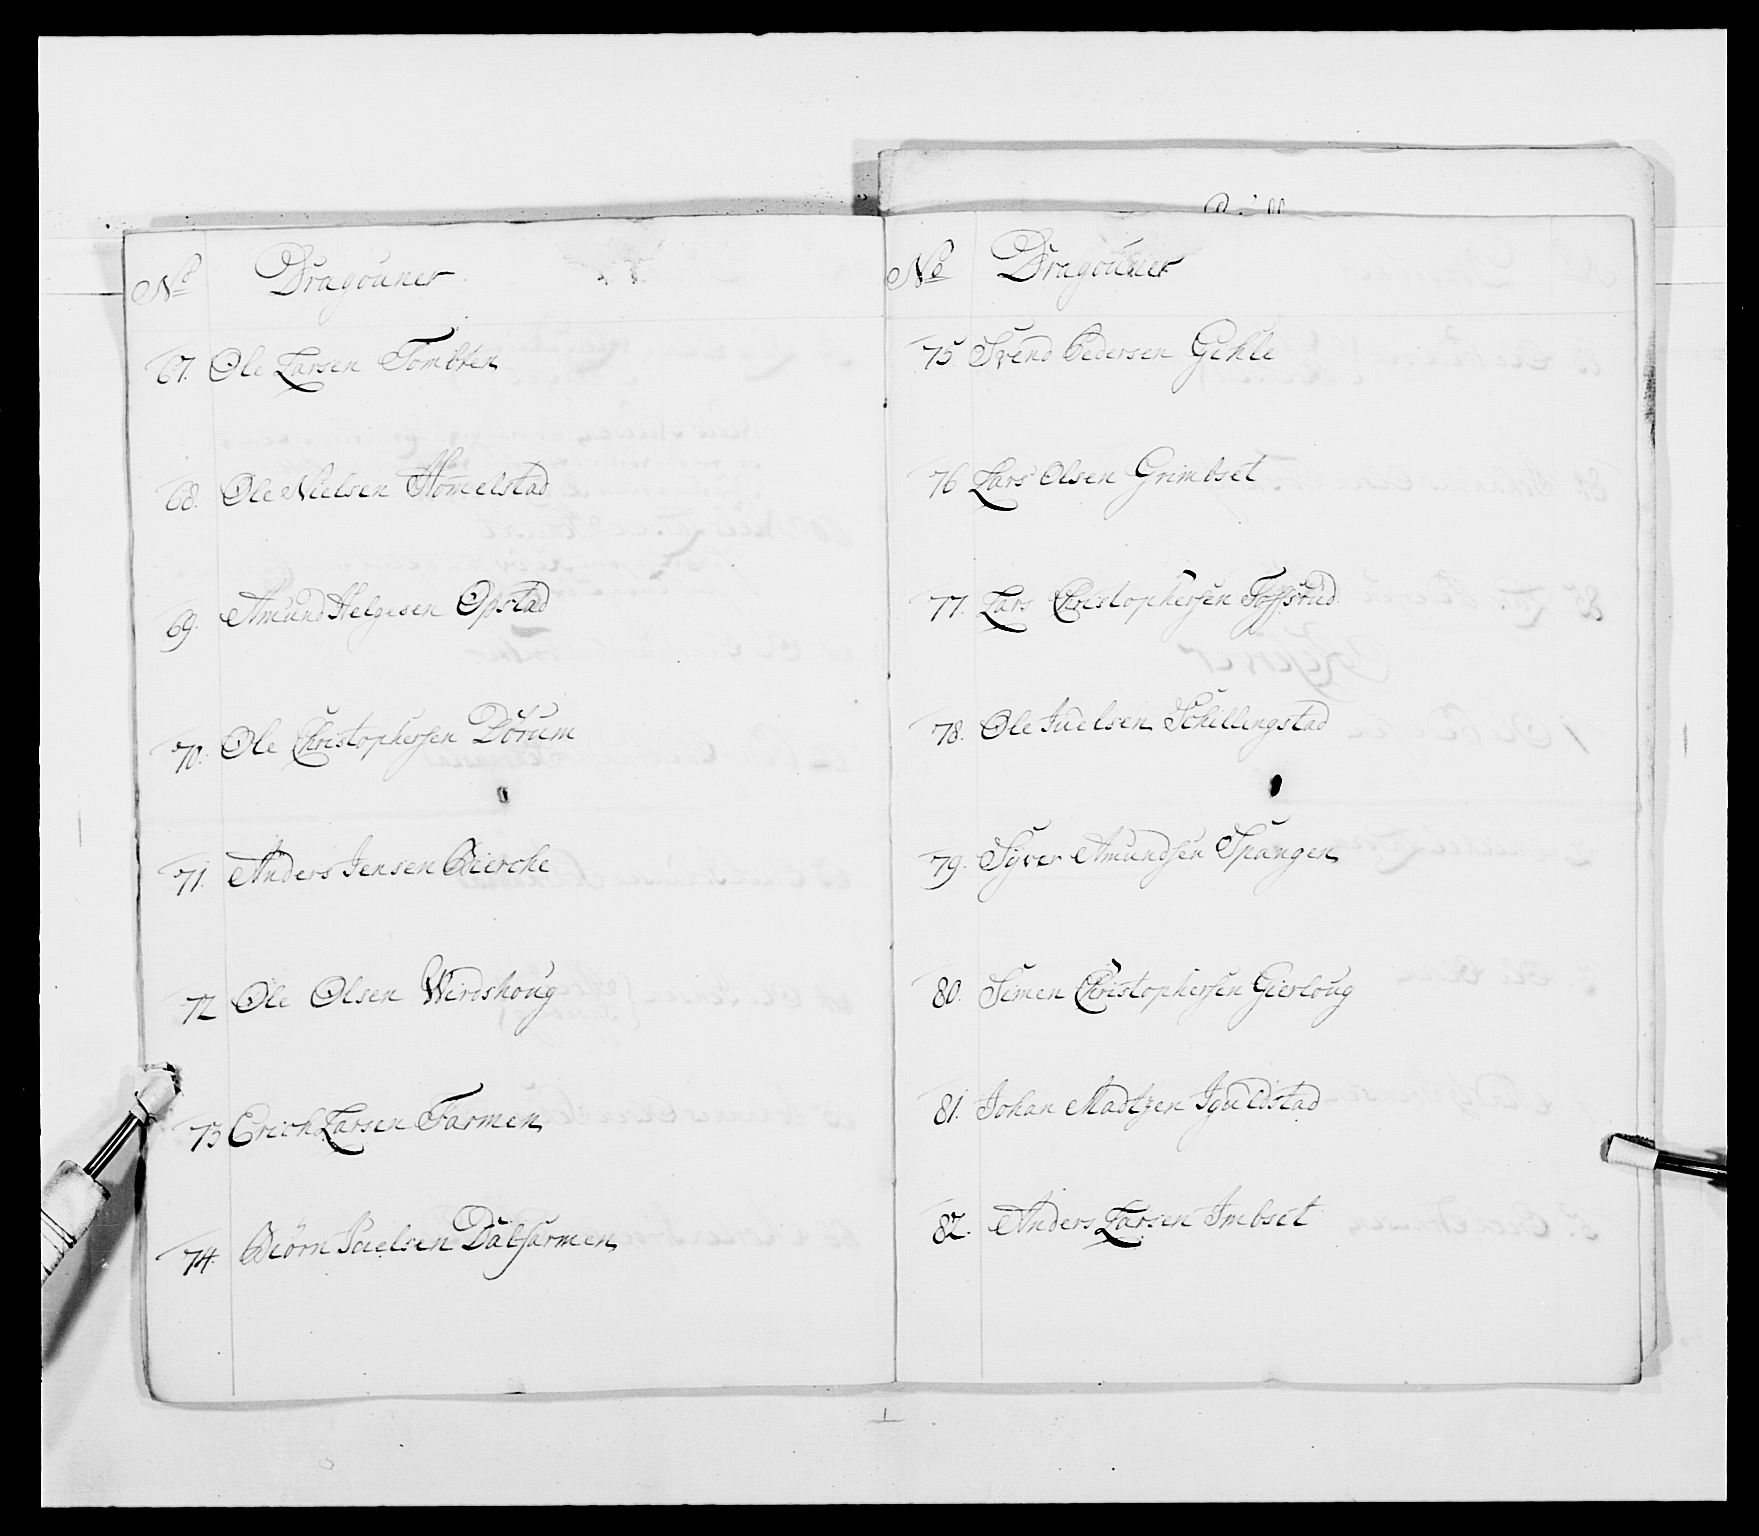 No Dragouner
67. Ole Larsen Tombten
68. Ole Nielsen Homelstad
69. Amund Helgesen Opstad
70. Ole Christophersen Dørum
71. Anders Jensen Bierche
72 Ole Olsen Wirdshoug
73 Erich Larsen Farmen
74. Biörn Poelsen Dalsarmen
No Dragouner
75. Svend Pedersen Gehle
76 Lars Olsen Grimbset
77. Lars Christophersen Toffsrud
78. Ole Juelsen Schillingstad
79. Syver Amundsen Spangen
80. Simen Christophersen Gierloug
81. Johan Madtzen Iguldstad
82. Anders Larsen Imbset